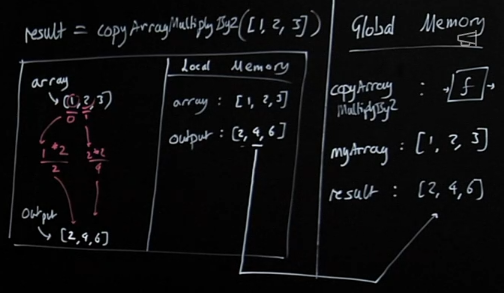 result = copyArrayMultiplyBy2([1, 2, 3])
array
[1, 2, 3]
0 1
1*2 2*2
2 4
output
[2, 4, 6]
Local Memory
array : [1, 2, 3]
output : [2, 4, 6]
Global Memory
copyArray
MultiplyBy2 : f
myArray : [1, 2, 3]
result : [2, 4, 6]